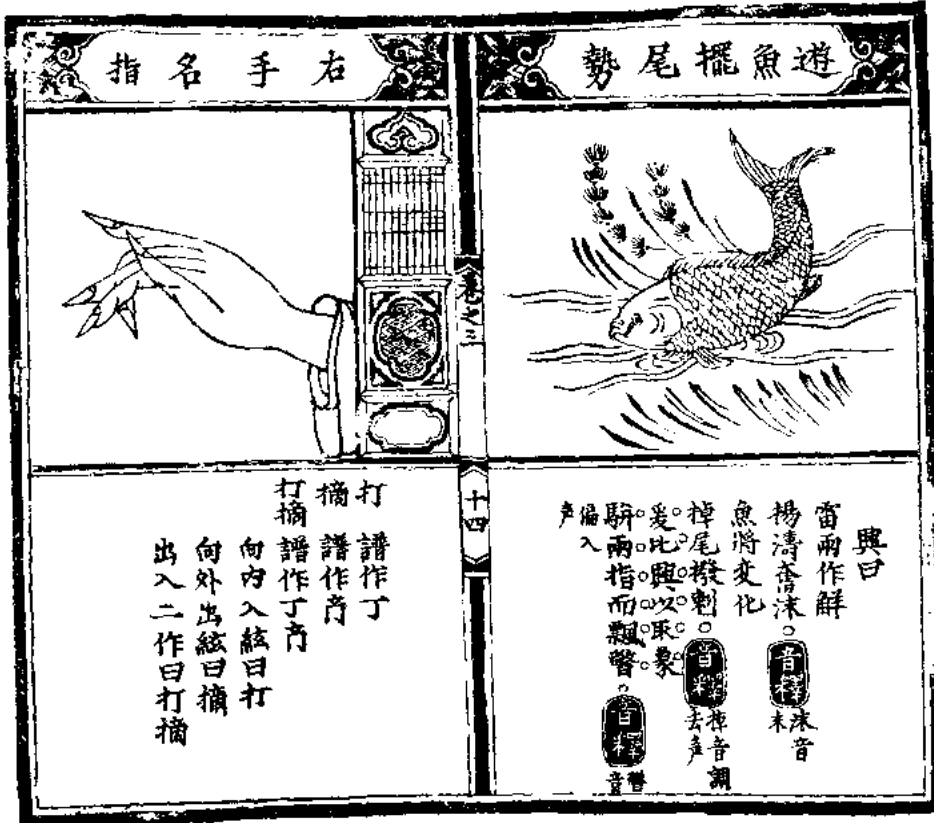 遊魚擺尾勢
興曰
雷雨作觧
揚濤奮沫。音釋沫音末
魚將变化
掉尾撥剌。音釋掉音調去声
爰比興以取象
騈兩指而飄瞥。音釋瞥音
偏入声
卷之二
十四
右手名指
打 譜作丁
摘 譜作
打摘 譜作丁
向內入絃曰打
向外出絃曰摘
出入二作曰打摘